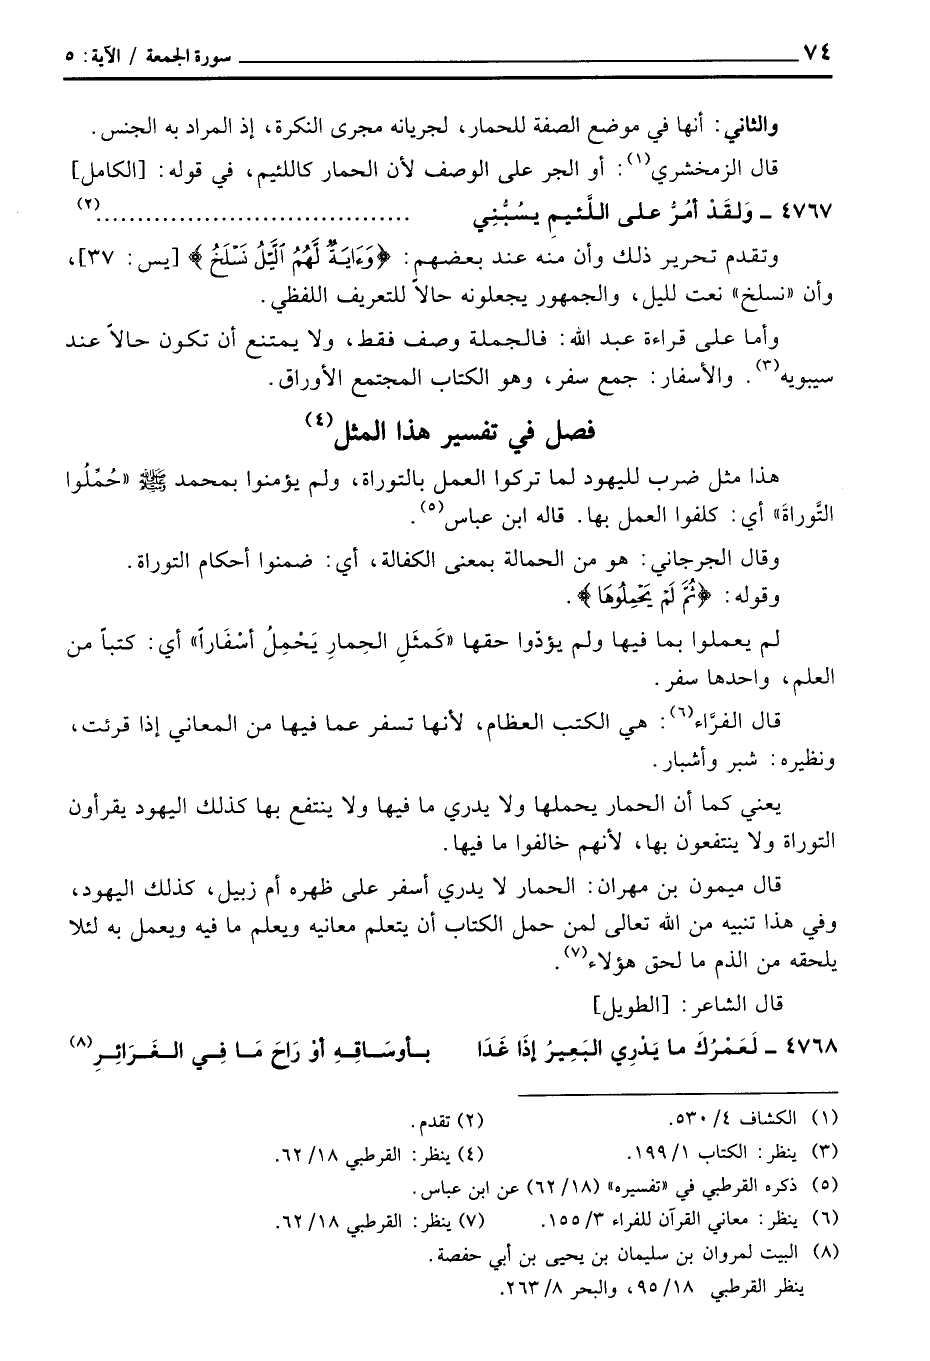 ٧٤ سورة الجمعة / الآية: ٥
والثاني: أنها في موضع الصفة للحمار، لجريانه مجرى النكرة، إذ المراد به الجنس.
قال الزمخشري(١): أو الجر على الوصف لأن الحمار كاللئيم، في قوله: [الكامل]
٤٧٦٧ ـ وَلَقَدْ أمُرُّ على اللَّئيم يسُبُّنِي ....................................(٢)
وتقدم تحرير ذلك وأن منه عند بعضهم: ﴿وَءَايَةٌ لَّهُمُ ٱلَّيْلُ نَسْلَخُ﴾ [يس: ٣٧]،
وأن «نسلخ» نعت لليل، والجمهور يجعلونه حالاً للتعريف اللفظي.
وأما على قراءة عبد الله: فالجملة وصف فقط، ولا يمتنع أن تكون حالاً عند
سيبويه(٣). والأسفار: جمع سفر، وهو الكتاب المجتمع الأوراق.
فصل في تفسير هذا المثل(٤)
هذا مثل ضرب لليهود لما تركوا العمل بالتوراة، ولم يؤمنوا بمحمد ﷺ «حُمِّلُوا
التَّوراةَ» أي: كلفوا العمل بها. قاله ابن عباس(٥).
وقال الجرجاني: هو من الحمالة بمعنى الكفالة، أي: ضمنوا أحكام التوراة.
وقوله: ﴿ثُمَّ لَمْ يَحْمِلُوهَا﴾.
لم يعملوا بما فيها ولم يؤدوا حقها «كَمثَلِ الحِمارِ يَحْمِلُ أسْفَاراً» أي: كتباً من
العلم، واحدها سفر.
قال الفرَّاء(٦): هي الكتب العظام، لأنها تسفر عما فيها من المعاني إذا قرئت،
ونظيره: شبر وأشبار.
يعني كما أن الحمار يحملها ولا يدري ما فيها ولا ينتفع بها كذلك اليهود يقرأون
التوراة ولا ينتفعون بها، لأنهم خالفوا ما فيها.
قال ميمون بن مهران: الحمار لا يدري أسفر على ظهره أم زبيل، كذلك اليهود،
وفي هذا تنبيه من الله تعالى لمن حمل الكتاب أن يتعلم معانيه ويعلم ما فيه ويعمل به لئلا
يلحقه من الذم ما لحق هؤلاء(٧).
قال الشاعر: [الطويل]
٤٧٦٨ ـ لَعَمْرُكَ ما يَدْرِي البَعِيرُ إذَا غَدَا بـأوسَـاقِـهِ أوْ رَاحَ مَـا فِـي الـغَـرَائِـرِ(٨)
(١) الكشاف ٤/ ٥٣٠. (٢) تقدم.
(٣) ينظر: الكتاب ١/ ١٩٩. (٤) ينظر: القرطبي ١٨/ ٦٢.
(٥) ذكره القرطبي في «تفسيره» (١٨/ ٦٢) عن ابن عباس.
(٦) ينظر: معاني القرآن للفراء ٣/ ١٥٥. (٧) ينظر: القرطبي ١٨/ ٦٢.
(٨) البيت لمروان بن سليمان بن يحيى بن أبي حفصة.
ينظر القرطبي ١٨/ ٩٥، والبحر ٨/ ٢٦٣.